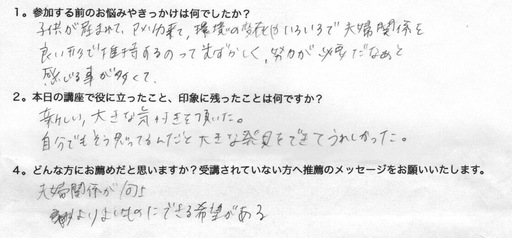 1。参加する前のお悩みやきっかけは何でしたか?
子供が産まれて、アメリカ来て、環境の変化いろいろで夫婦関係を
良い形で維持するのってむずかしく、努力が必要だなあと
感じる事が多くて。
2。本日の講座で役に立ったこと、印象に残ったことは何ですか?
新しい、大きな気付きを頂いた。
自分でもそう思ってるんだと大きな発見をできてうれしかった。
4。どんな方にお薦めだと思いますか?受講されていない方へ推薦のメッセージをお願いいたします。
夫婦関係が何
よりよいものにできる希望がある